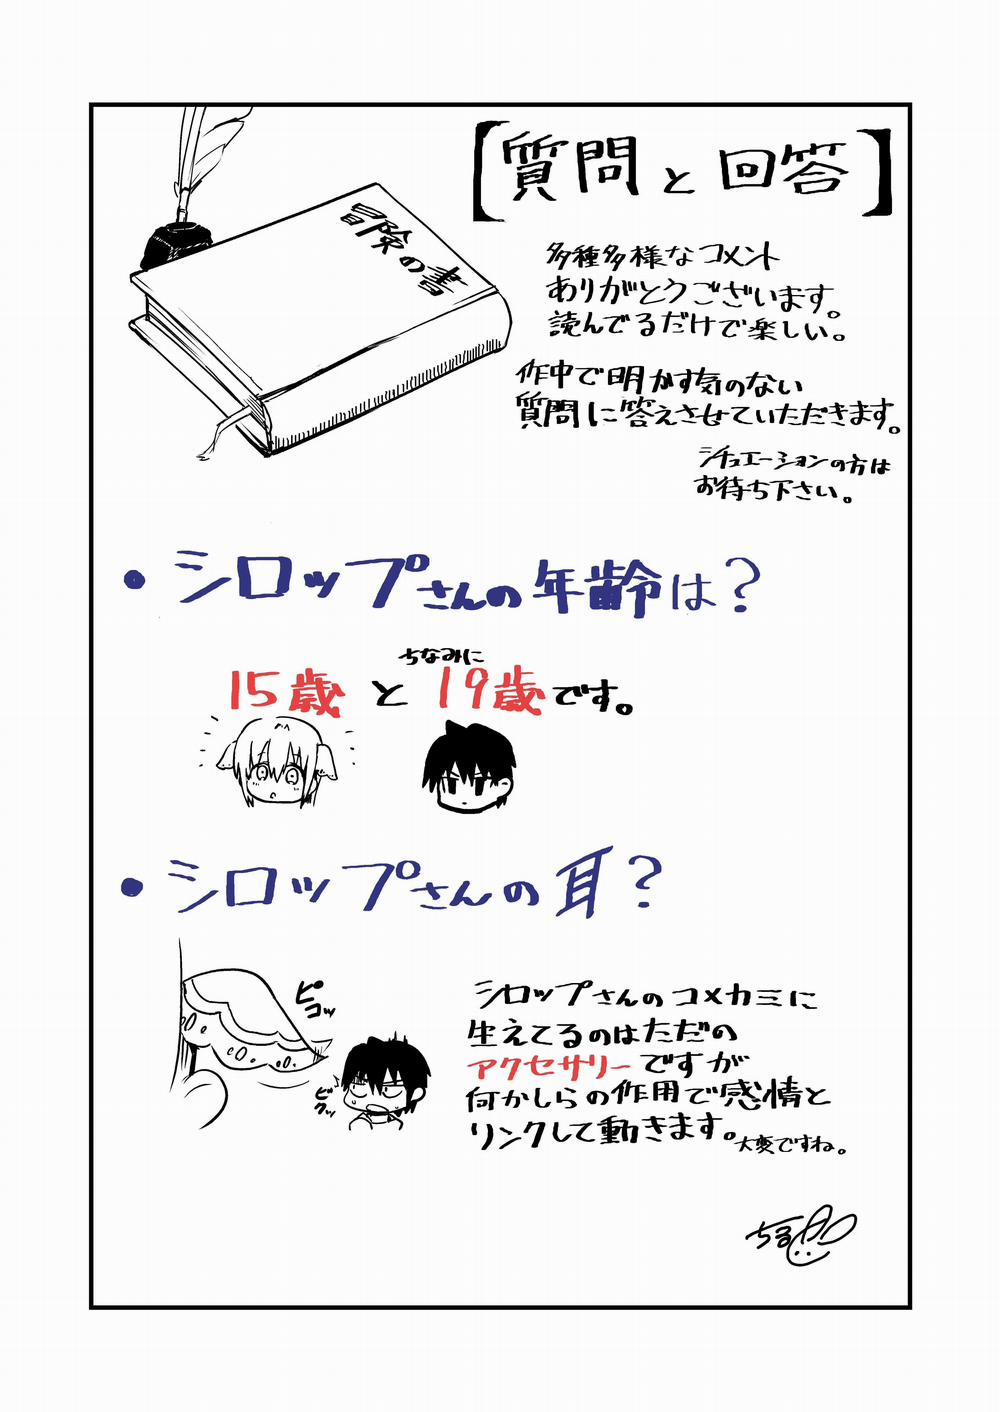 【質問と回答】
冒険の書
多種多様なコメント
ありがとうございます。
読んでるだけで楽しい。
作中で明かす気のない
質問に答えさせていただきます。
シチュエーションの方は
お待ち下さい。
・シロップさんの年齢は？
ちなみに
15歳と19歳です。
・シロップさんの耳？
ピコッ
ビクッ
シロップさんのコメカミに
生えてるのはただの
アクセサリーですが
何かしらの作用で感情と
リンクして動きます。
大変ですね。
ちる